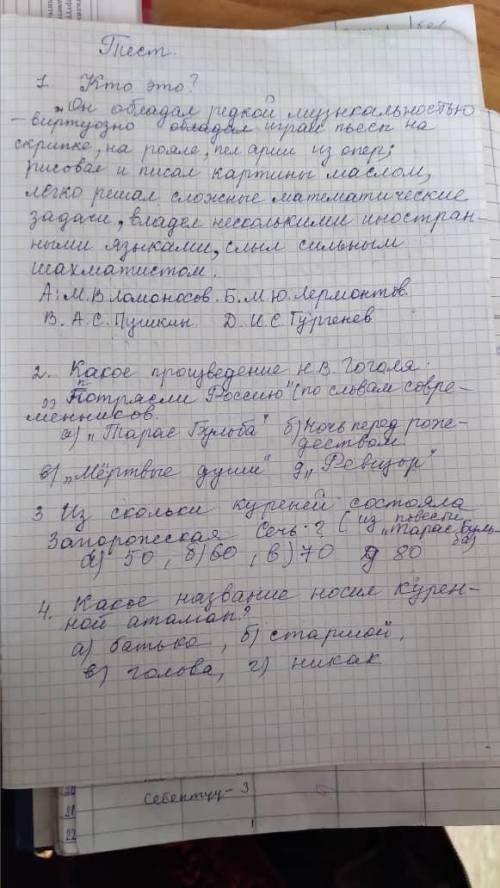 Тест.
1. Кто это?
„Он обладал редкой музыкальностью
– виртуозно обладал играл пьесы на
скрипке, на рояле, пел арии из опер;
рисовал и писал картины маслом,
легко решал сложные математические
задачи, владел несколькими иностран-
ными языками, слыл сильным
шахматистом.
А: М.В Ломоносов. Б. М.Ю. Лермонтов.
В. А.С. Пушкин Д. И.С. Тургенев
2. Какое произведение Н.В. Гоголя
„Потрясли Россию" (по словам совре-
менников.
а) „Тарас Бульба" б) Ночь перед рож-
деством.
в) „Мёртвые души" д „Ревизор"
3 Из скольки куреней состояла
Запорожская Сечь? (из повести
„Тарас Буль-
ба)
а) 50, б) 60, в) 70 д 80
4. Какое название носил курен-
ной атаман?
а) батько, б) старшой,
в) голова, г) никак
Себептүү – 3
20
21
22